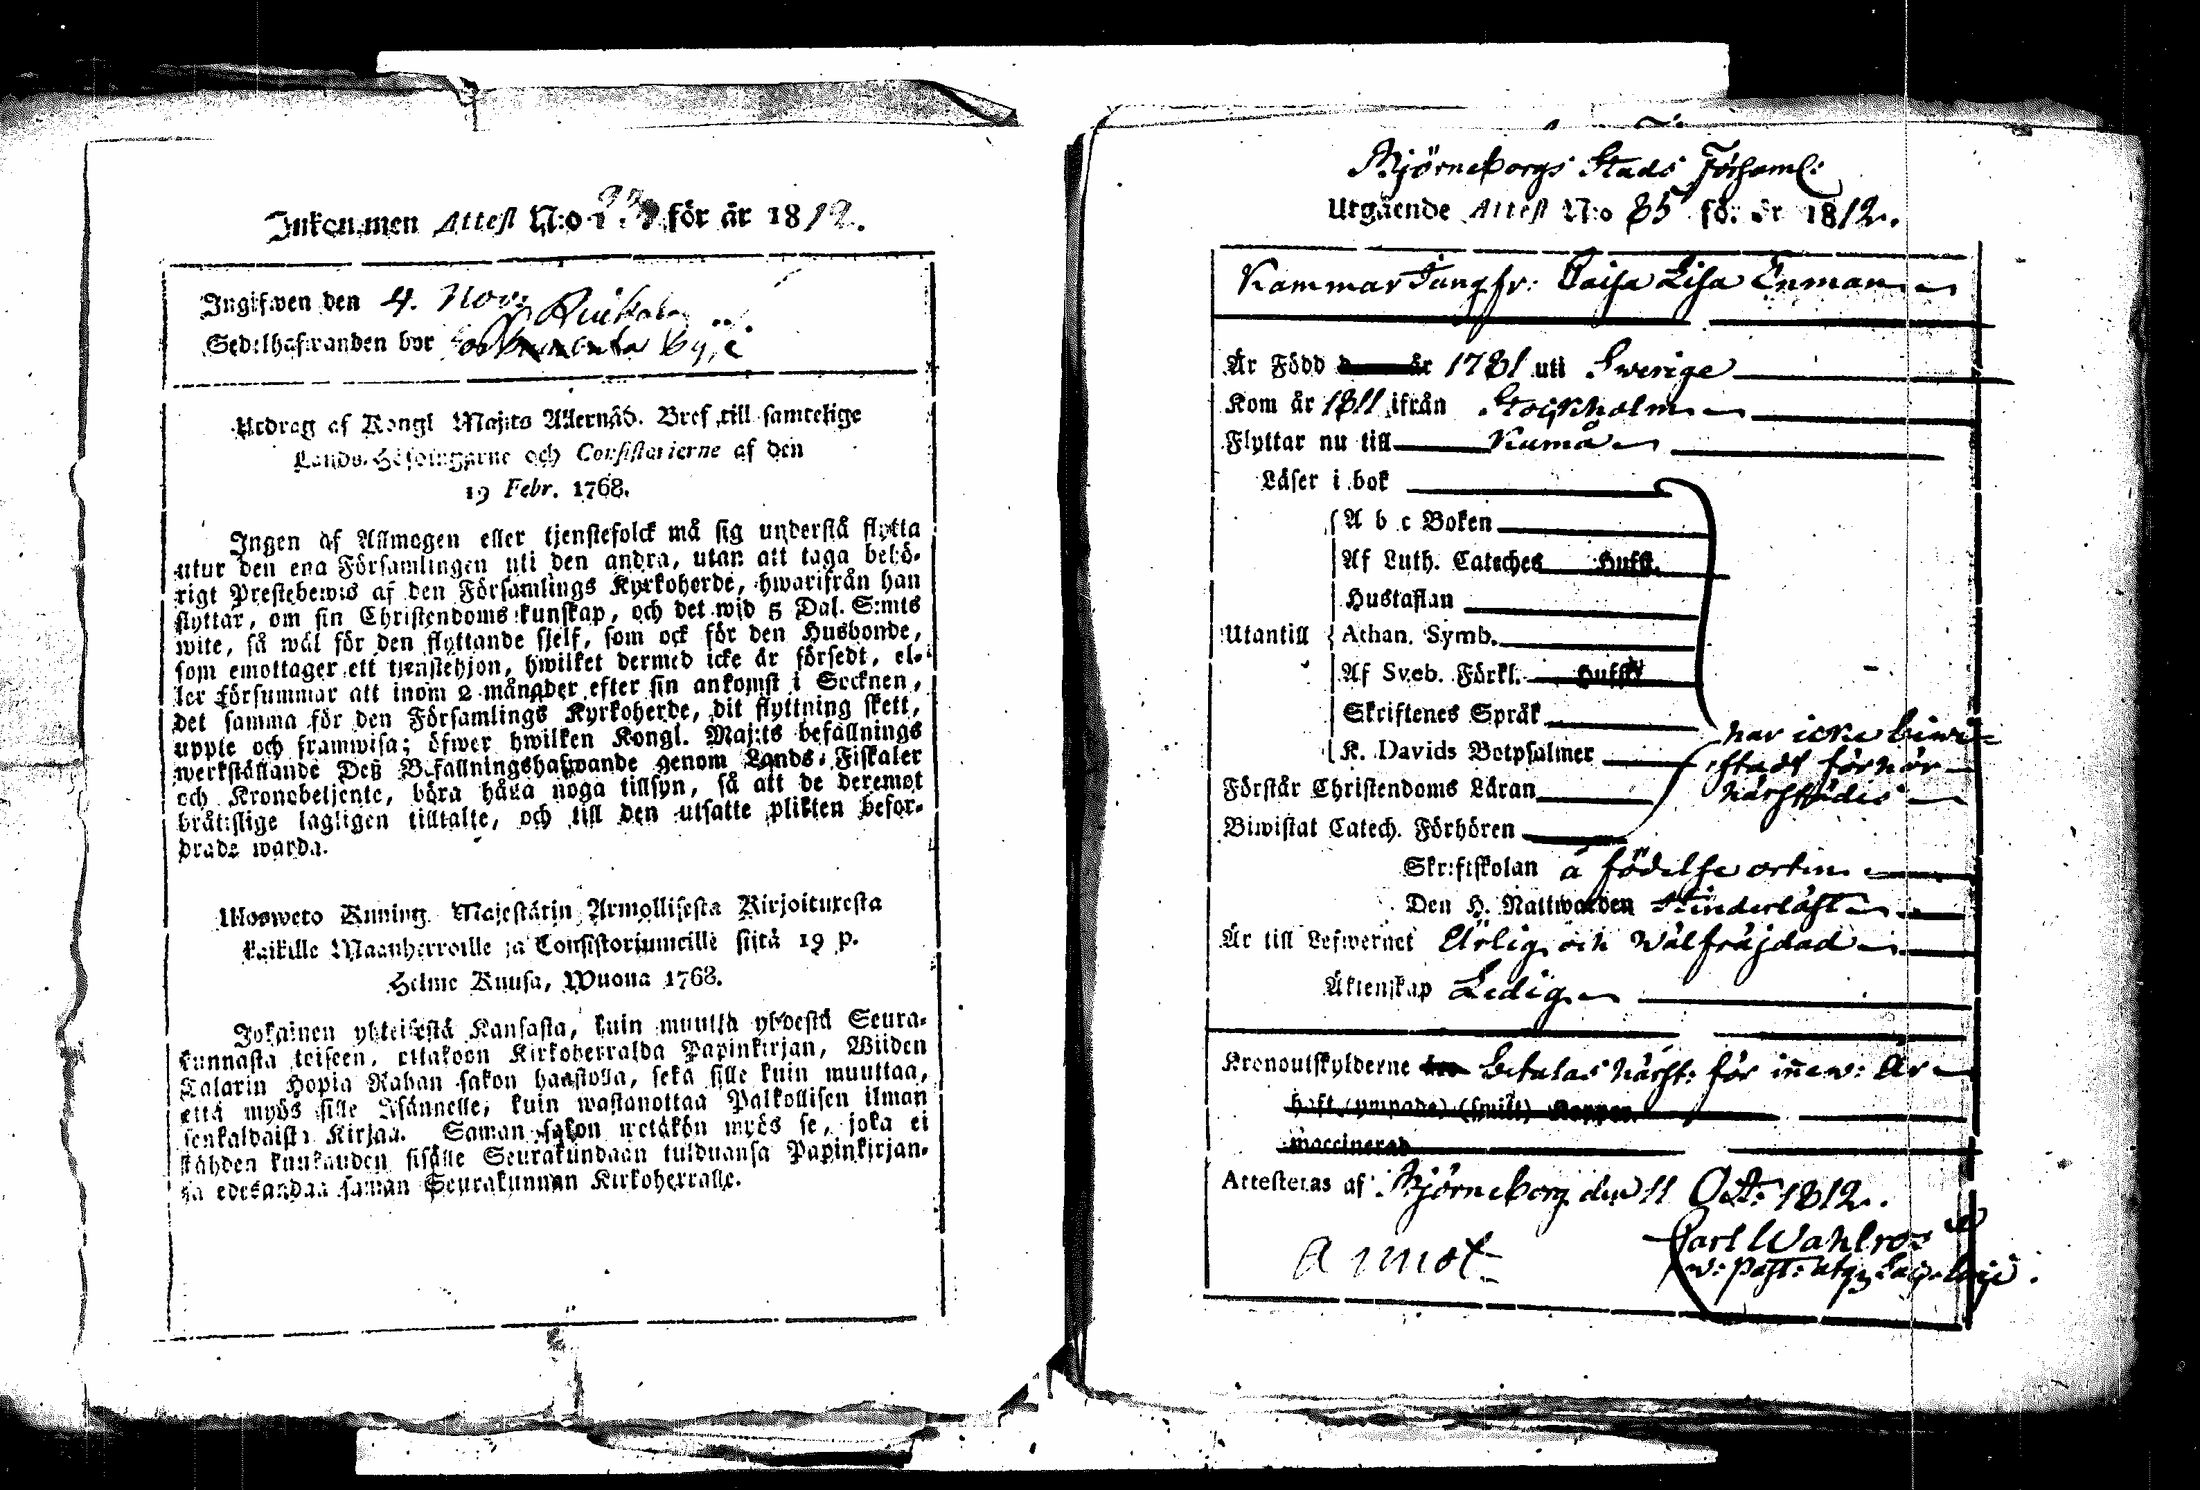 Inkommen Attest N:o för år 1812.
Ingifwen den 4. Nov:
Sedelhafwanden bor
Utdrag af Kongl Maj:ts Allernåd. Bref till samtelige
Lands-Höfdingarne och Consistorierne af den
19 Febr. 1768.
Ingen af Allmogen eller tjenstefolck må sig understå flytta
utur den ena Församlingen uti den andra, utan att taga behö-
rigt Prestebewis af den Församlings Kyrkoherde, hwarifrån han
flyttar, om sin Christendoms kunskap, och det wid 5 Dal. S:mts
wite, så wäl för den flyttande sjelf, som ock för den Husbonde,
som emottager ett tjenstehjon, hwilket dermed icke är försedt, el-
ler försummar att inom 2 månader efter sin ankomst i Socknen,
det samma för den Församlings Kyrkoherde, dit flyttning skett,
uppte och framwisa; öfwer hwilken Kongl. Maj:ts befallnings
werkställande Deß Befallningshafwande genom Lands-Fiskaler
och Kronobetjente, böra hålla noga tillsyn, så att de deremot
bråtslige lagligen tilltalte, och till den utsatte plikten befor-
drade warda.
Ulosweto Kuning. Majestätin Armollisesta Kirjoituxesta
kaikille Maanherroille ja Consistoriumeille siitä 19 p.
Helme Kuusa, Wuona 1768.
Jokainen yhteisestä Kansasta, kuin muutta yhdestä Seura-
kunnasta toiseen, ottakoon Kirkoherralda Papinkirjan, Wiiden
Talarin Hopia Rahan sakon haastolla, sekä sille kuin muuttaa,
että myös sille Isännelle, kuin wastanottaa Palkollisen ilman
senkaldaista Kirjaa. Saman sakon wetäkön myös se, joka ei
kahden kuukauden sisälle Seurakundaan tulduansa Papinkirjan-
sa edesandaa saman Seurakunnan Kirkoherralle.
Björneborgs Stads Församl:
Utgående Attest N:o 85 för år 1812.
Kammar Jungfr: Caisa Lisa Enman
Är Född d år 1781 uti Swerige
Kom år 1811 ifrån Stockholm
Flyttar nu till Kumå
Läser i bok
A b c Boken
Af Luth. Cateches Hufst.
Hustaflan
Utantill Athan. Symb.
Af Sveb. Förkl. Hufst.
Skriftenes Språk
K. Davids Botpsalmer
har icke biwi-
stadt förhör
härstädes
Förstår Christendoms Läran
Biwistat Catech. Förhören
Skriftskolan å födelse orten
Den H. Nattwarden Hinderlöst
Är till Lefwernet Ärlig och Wälfräjdad
Äktenskap Ledig
Kronoutskylderne Betalas härst: för innew: År
haft (ympade) (smitt) Koppor
waccinerad
Attesteras af Björneborg den 11 Oct: 1812.
Carl Wahlroos